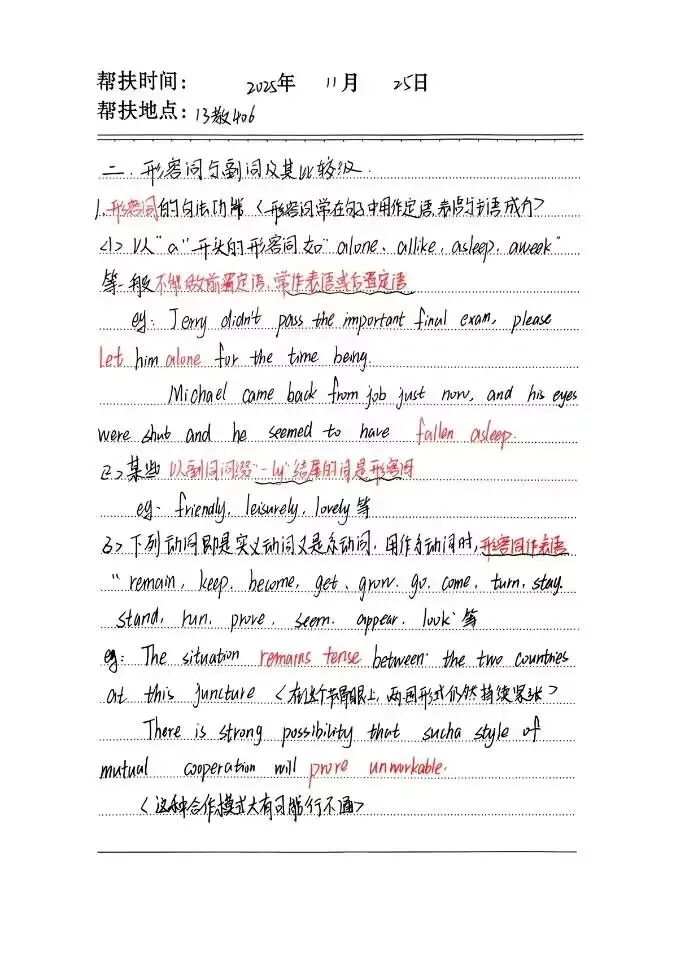 帮扶时间： 2025年 11月 25日
帮扶地点：13教406
二．形容词与副词及其比较级．
1．形容词的句法功能〈形容词常在句子中用作定语，表语与宾语成分〉
〈1〉以“a”开头的形容词如“alone、allike、asleep、aweek”
等一般不能做前置定语，常作表语或后置定语
eg：Jerry didn't pass the important final exam, please
let him alone for the time being.
Michael came back from job just now, and his eyes
were shut and he seemed to have fallen asleep.
〈2〉某些以副词词缀“-ly”结尾的词是形容词
eg. friendly, leisurely, lovely 等
〈3〉下列动词即是实义动词又是系动词，用作系动词时，形容词作表语
“remain, keep. become, get、grow. go. come, turn, stay.
stand, run, prove, seem. appear. look" 等
eg: The situation remains tense between the two countries
at this juncture〈在这个节骨眼上，两国形式仍然持续紧张〉
There is strong possibility that sucha style of
mutual cooperation will prove unworkable.
〈这种合作模式大有可能行不通〉